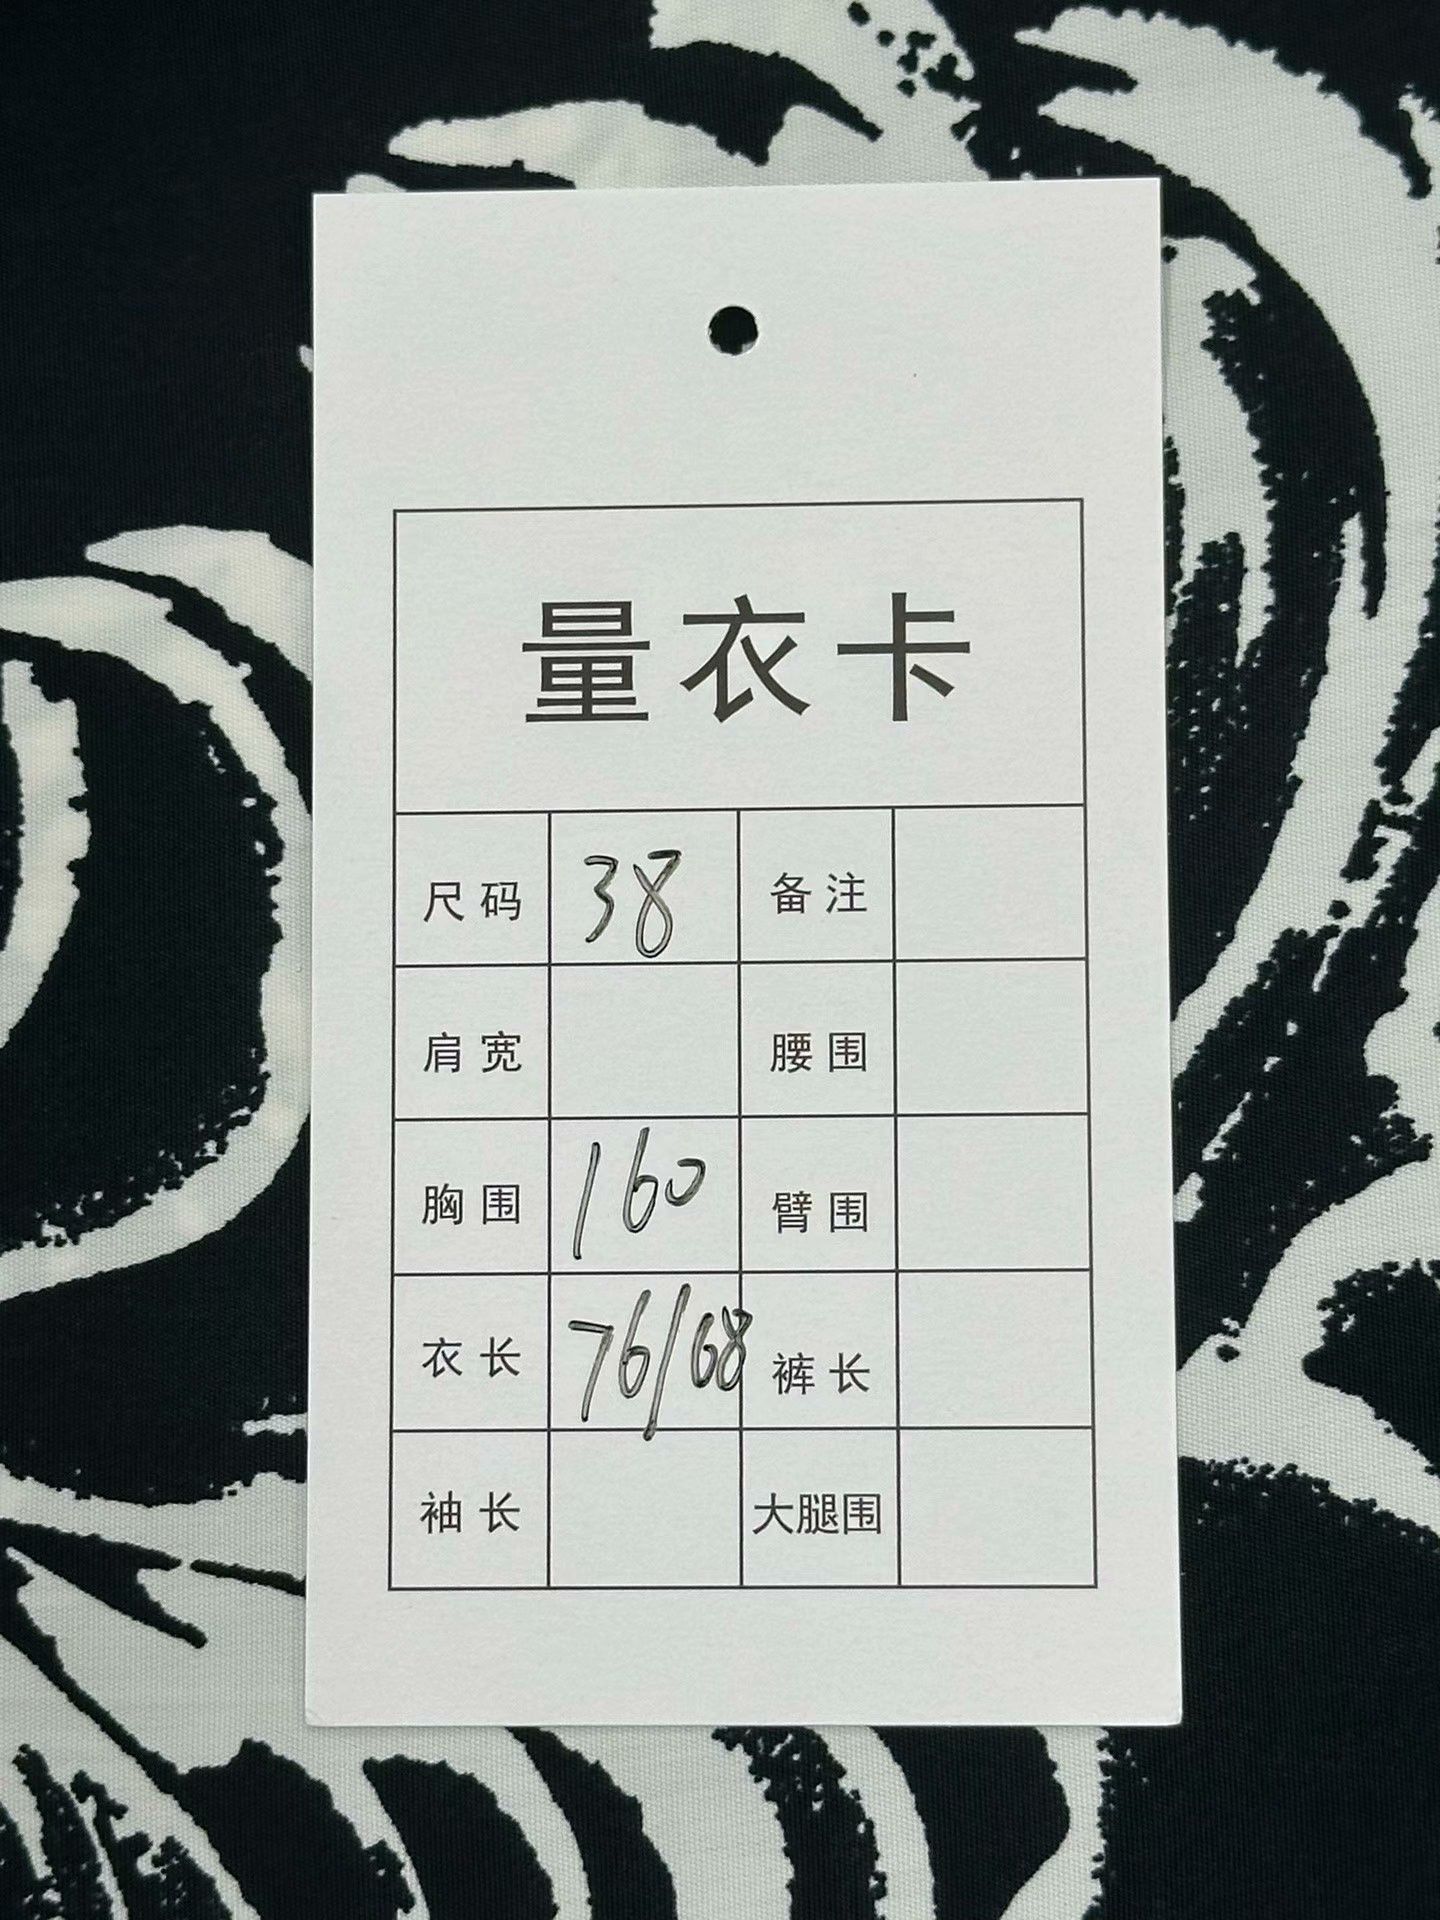 量衣卡
尺码 38 备注
肩宽 腰围
胸围 160 臂围
衣长 76/68 裤长
袖长 大腿围